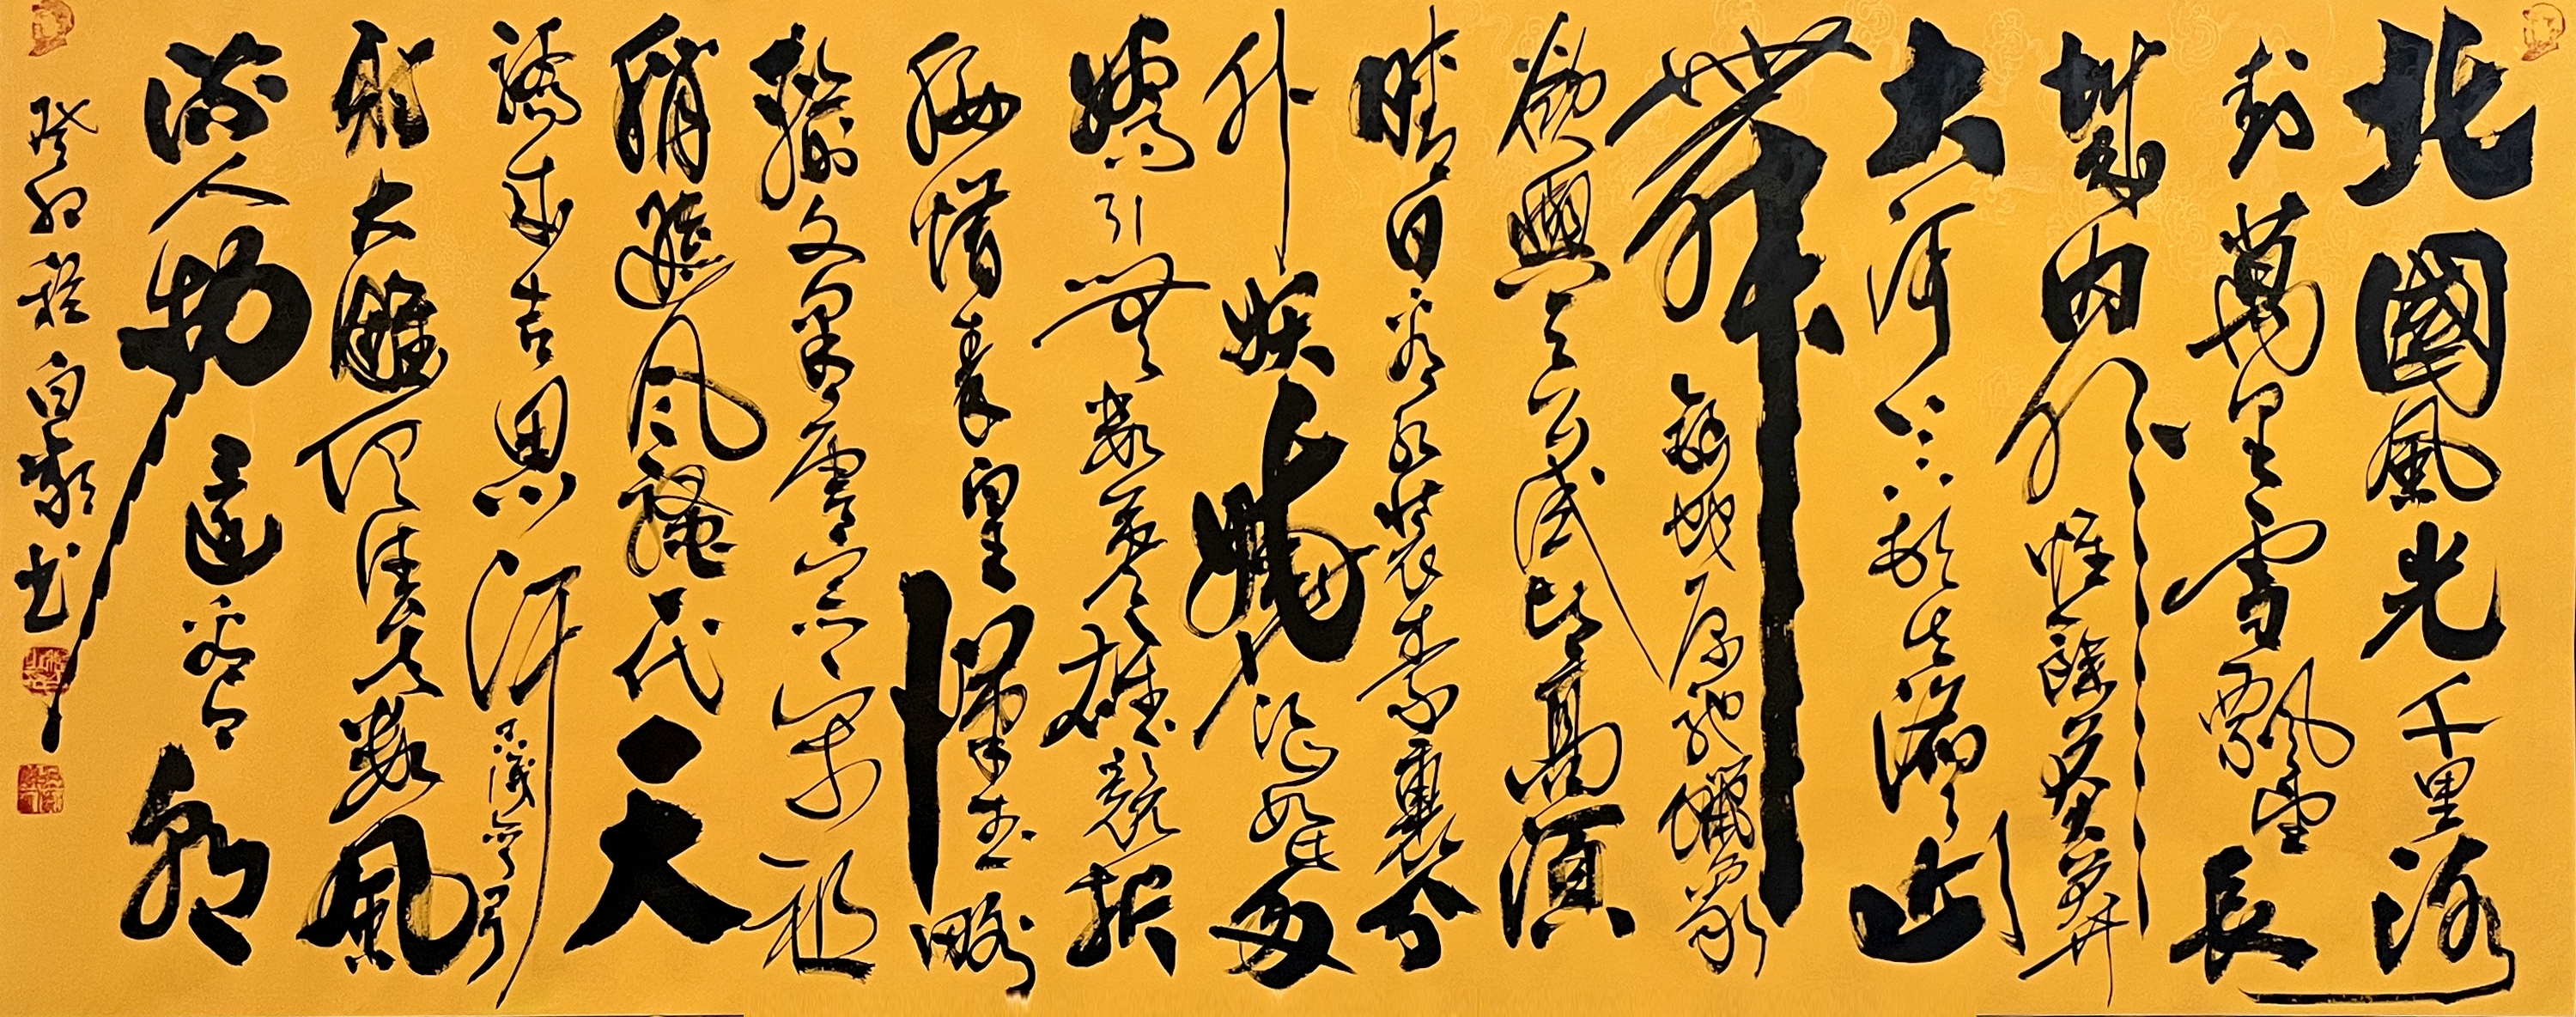 北國風光千里冰
封萬里雪飄望長
城內外惟餘莽莽
大河上下頓失滔滔山
舞銀蛇原馳蠟象
欲與天公試比高須
晴日看紅裝素裹分
外妖嬈江山如此多
嬌引無數英雄競折
腰惜秦皇漢武略
輸文采唐宗宋祖
稍遜風騷一代天
驕成吉思汗只識彎弓
射大雕俱往矣數風
流人物還看今朝
癸卯程書